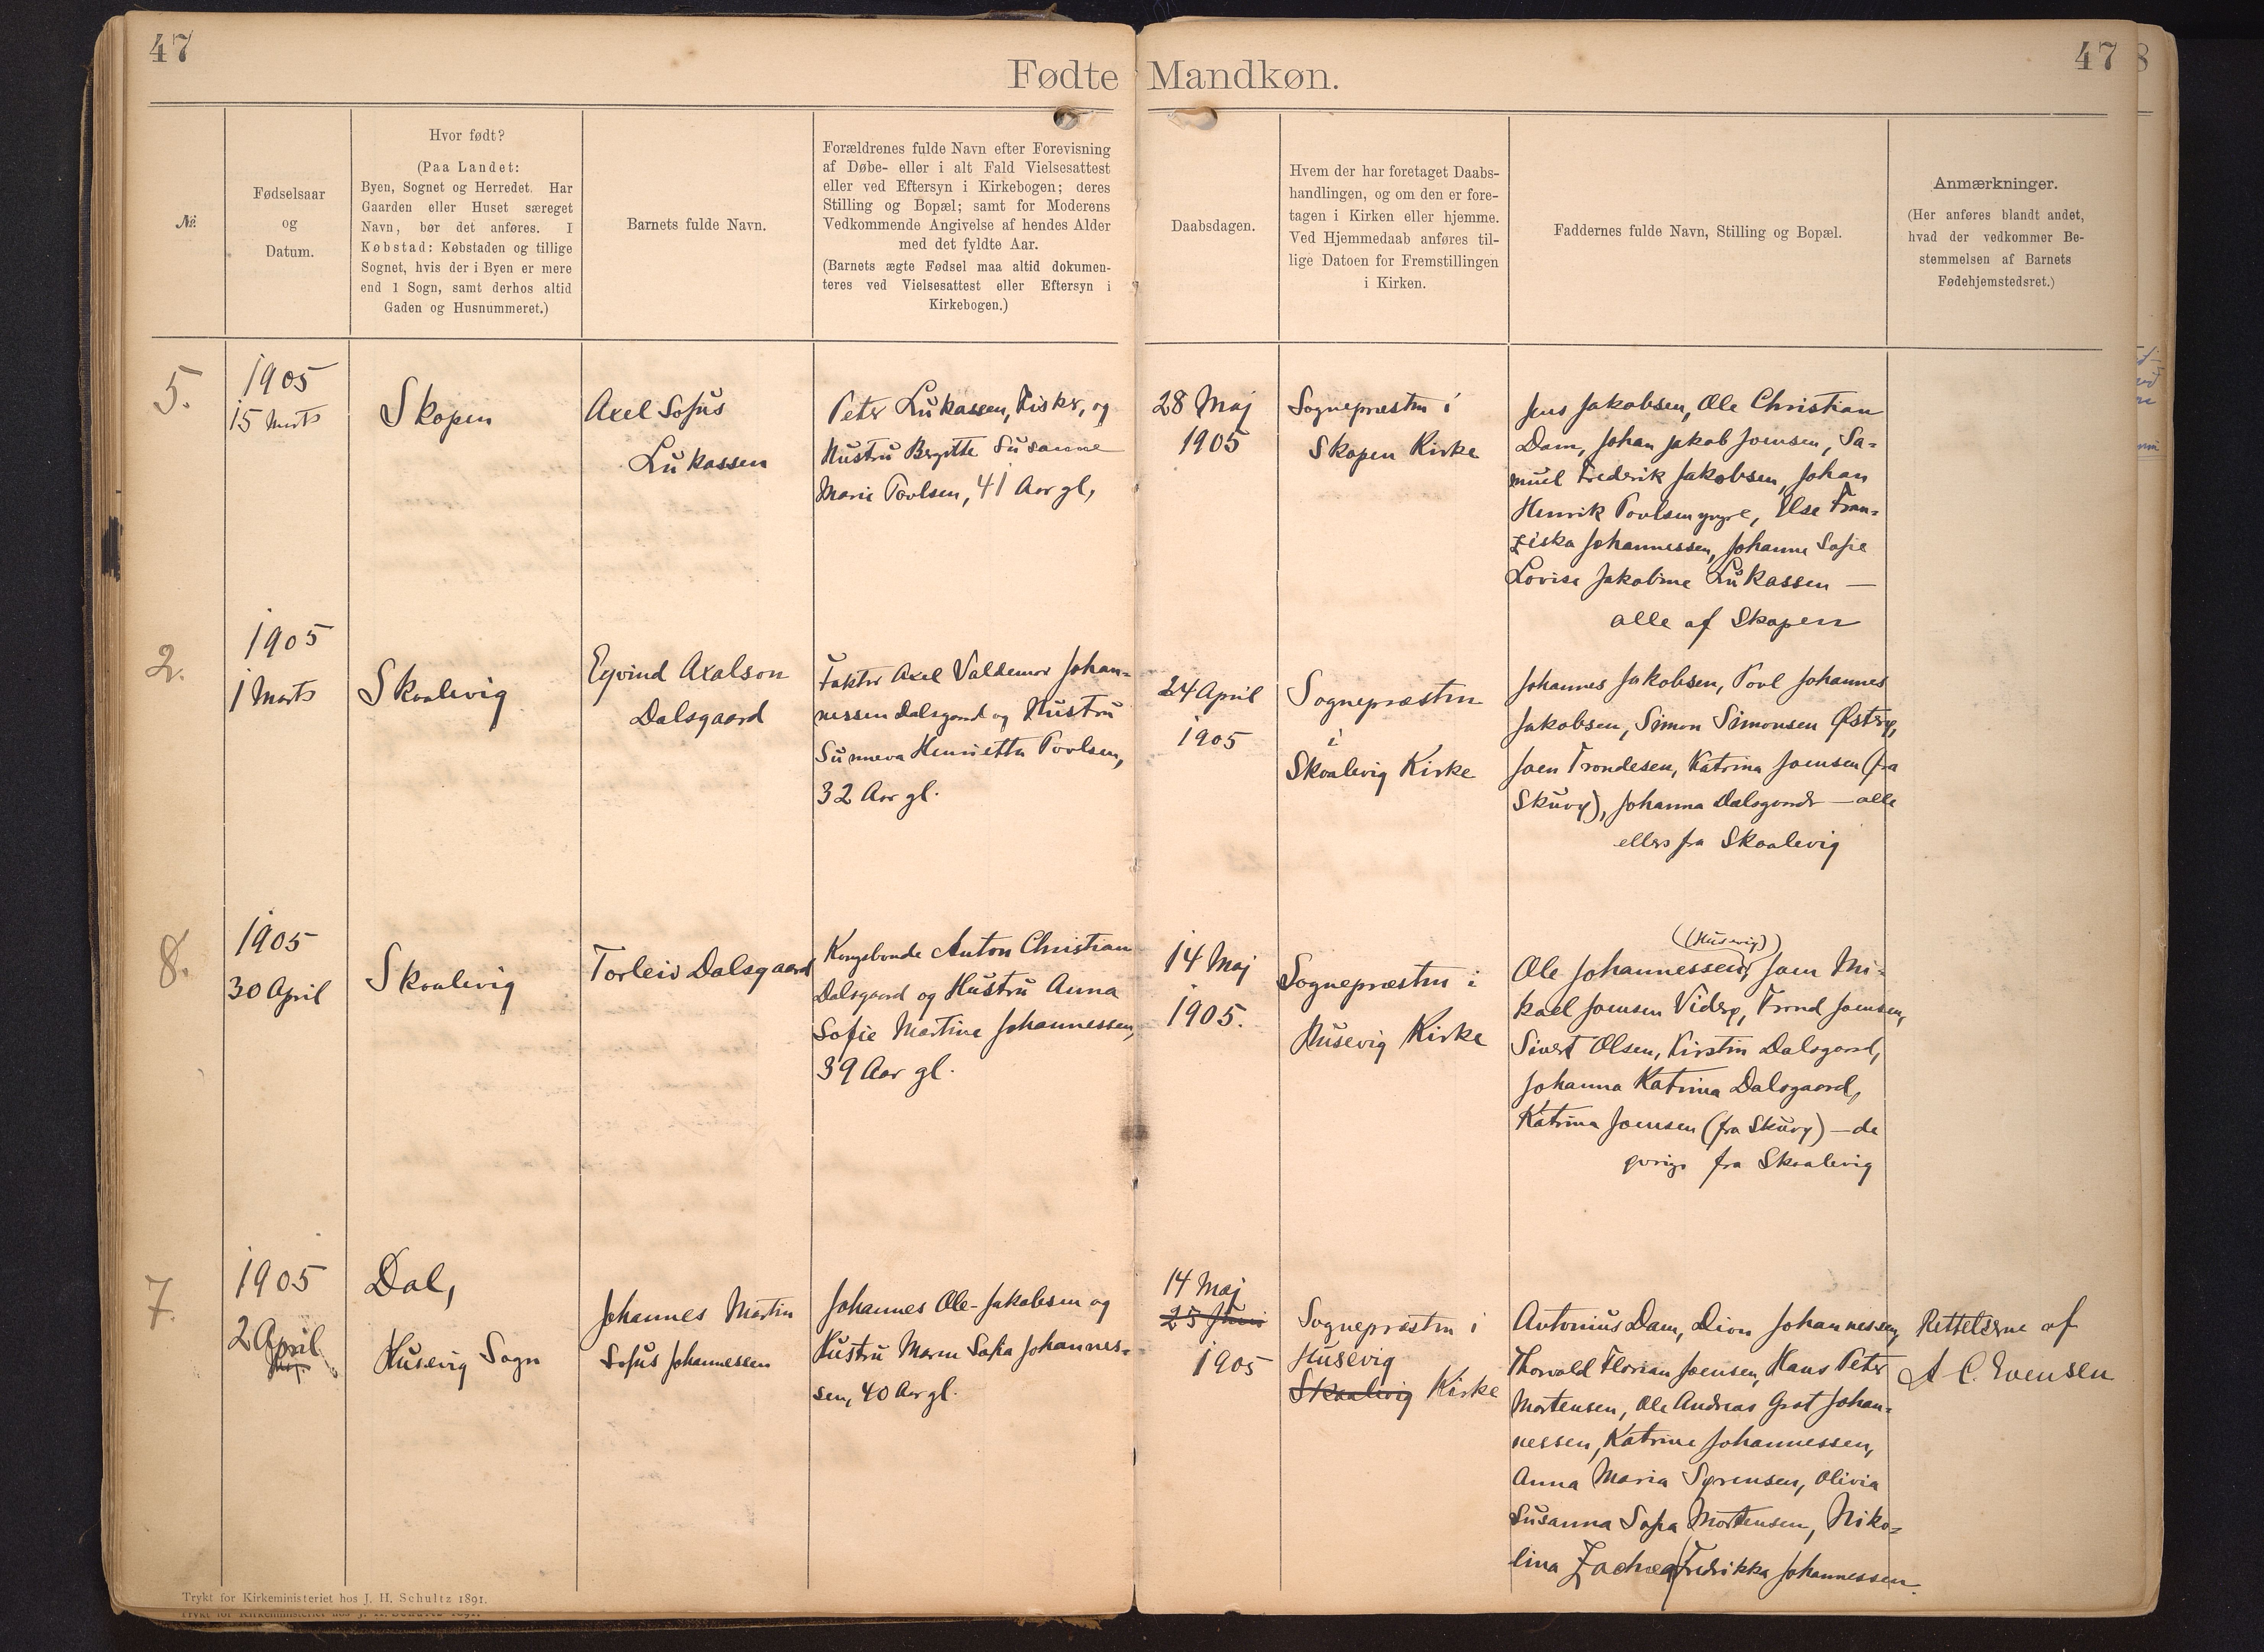 47
Fødte Mandkøn.
47
8
№
Fødselsaar
og
Datum.
Hvor født?
(Paa Landet:
Byen, Sognet og Herredet. Har
Gaarden eller Huset særeget
Navn, bør det anføres. I
Købstad: Købstaden og tillige
Sognet, hvis der i Byen er mere
end 1 Sogn, samt derhos altid
Gaden og Husnummeret.)
Barnets fulde Navn.
Forældrenes fulde Navn efter Forevisning
af Døbe- eller i alt Fald Vielsesattest
eller ved Eftersyn i Kirkebogen; deres
Stilling og Bopæl; samt for Moderens
Vedkommende Angivelse af hendes Alder
med det fyldte Aar.
(Barnets ægte Fødsel maa altid dokumen-
teres ved Vielsesattest eller Eftersyn i
Kirkebogen.)
Daabsdagen.
Hvem der har foretaget Daabs-
handlingen, og om den er fore-
tagen i Kirken eller hjemme.
Ved Hjemmedaab anføres til-
lige Datoen for Fremstillingen
i Kirken.
Faddernes fulde Navn, Stilling og Bopæl.
Anmærkninger.
(Her anføres blandt andet,
hvad der vedkommer Be-
stemmelsen af Barnets
Fødehjemstedsret.)
5.
1905
15 Marts
Skopen
Axel Sofus
Lukassen
Peter Lukassen, Fisker, og
Hustru Bergitte Susanne
Marie Povlsen, 41 Aar gl,
28 Maj
1905
Sognepræsten i
Skopen Kirke
Jens Jakobsen, Ole Christian
Dam, Johan Jakob Joensen, Sa-
muel Frederik Jakobsen, Johan
Henrik Povlsen yngre, Else Fran-
ziska Johannessen, Johanne Sofie
Lovise Jakobine Lukassen —
alle af Skopen
2.
1905
1 Marts
Skaalevig
Eyvind Axelson
Dalsgaard
Faktor Axel Valdemar Johan-
nessen Dalsgaard og Hustru
Sunneva Henrietta Povlsen,
32 Aar gl.
24 April
1905
Sognepræsten
i
Skaalevig Kirke
Johannes Jakobsen, Povl Johannes
Jakobsen, Simon Simonsen Østerø,
Joen Trondesen, Katrina Joensen (fra
Skuvø), Johanna Dalsgaard — alle
ellers fra Skaalevig
8.
1905
30 April
Skaalevig
Torleiv Dalsgaard
Kongsbonde Anton Christian
Dalsgaard og Hustru Anna
Sofie Martine Johannessen,
39 Aar gl.
14 Maj
1905.
Sognepræsten i
Husevig Kirke
(Husevig)
Ole Johannessen, Joen Mi-
kael Joensen Viderø, Trond Joensen,
Sivert Olsen, Kirstin Dalsgaard,
Johanna Katrina Dalsgaard,
Katrina Joensen (fra Skuvø) — de
øvrige fra Skaalevig
7.
1905
2 April
Maj
Dal,
Husevig Sogn
Johannes Martin
Sofus Johannessen
Johannes Ole-Jakobsen og
Hustru Maren Sofia Johannes-
sen, 40 Aar gl.
14 Maj
25 Juni
1905
Sognepræsten i
Husevig
Skaalevig Kirke
Antonius Dam, Dion Johannessen,
Thorvald Florian Joensen, Hans Peter
Mortensen, Ole Andreas Grot Johan-
nessen, Katrine Johannessen,
Anna Maria Sørensen, Olivia
Susanna Sofia Mortensen, Niko-
lina Zachea Fredrikka Johannessen.
Rettelserne af
A. C. Evensen
Trykt for Kirkeministeriet hos J. H. Schultz 1891.